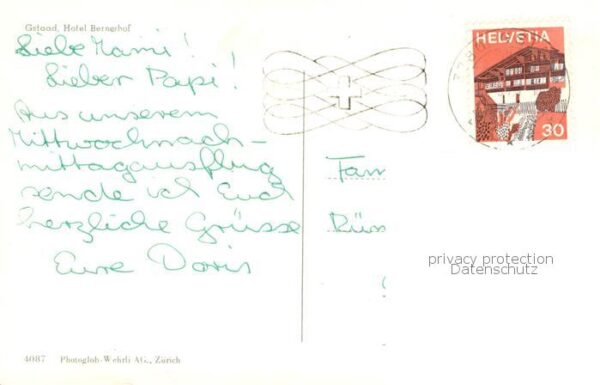 Gstaad, Hotel Bernerhof
Liebe Mami!
Lieber Papi!
Aus unserem
Mittwochnach-
mittagausflug
sende ich Euch
herzliche Grüsse
Eure Doris
HELVETIA
30
Fam
Rüss
privacy protection
Datenschutz
4087 Photoglob-Wehrli AG., Zürich